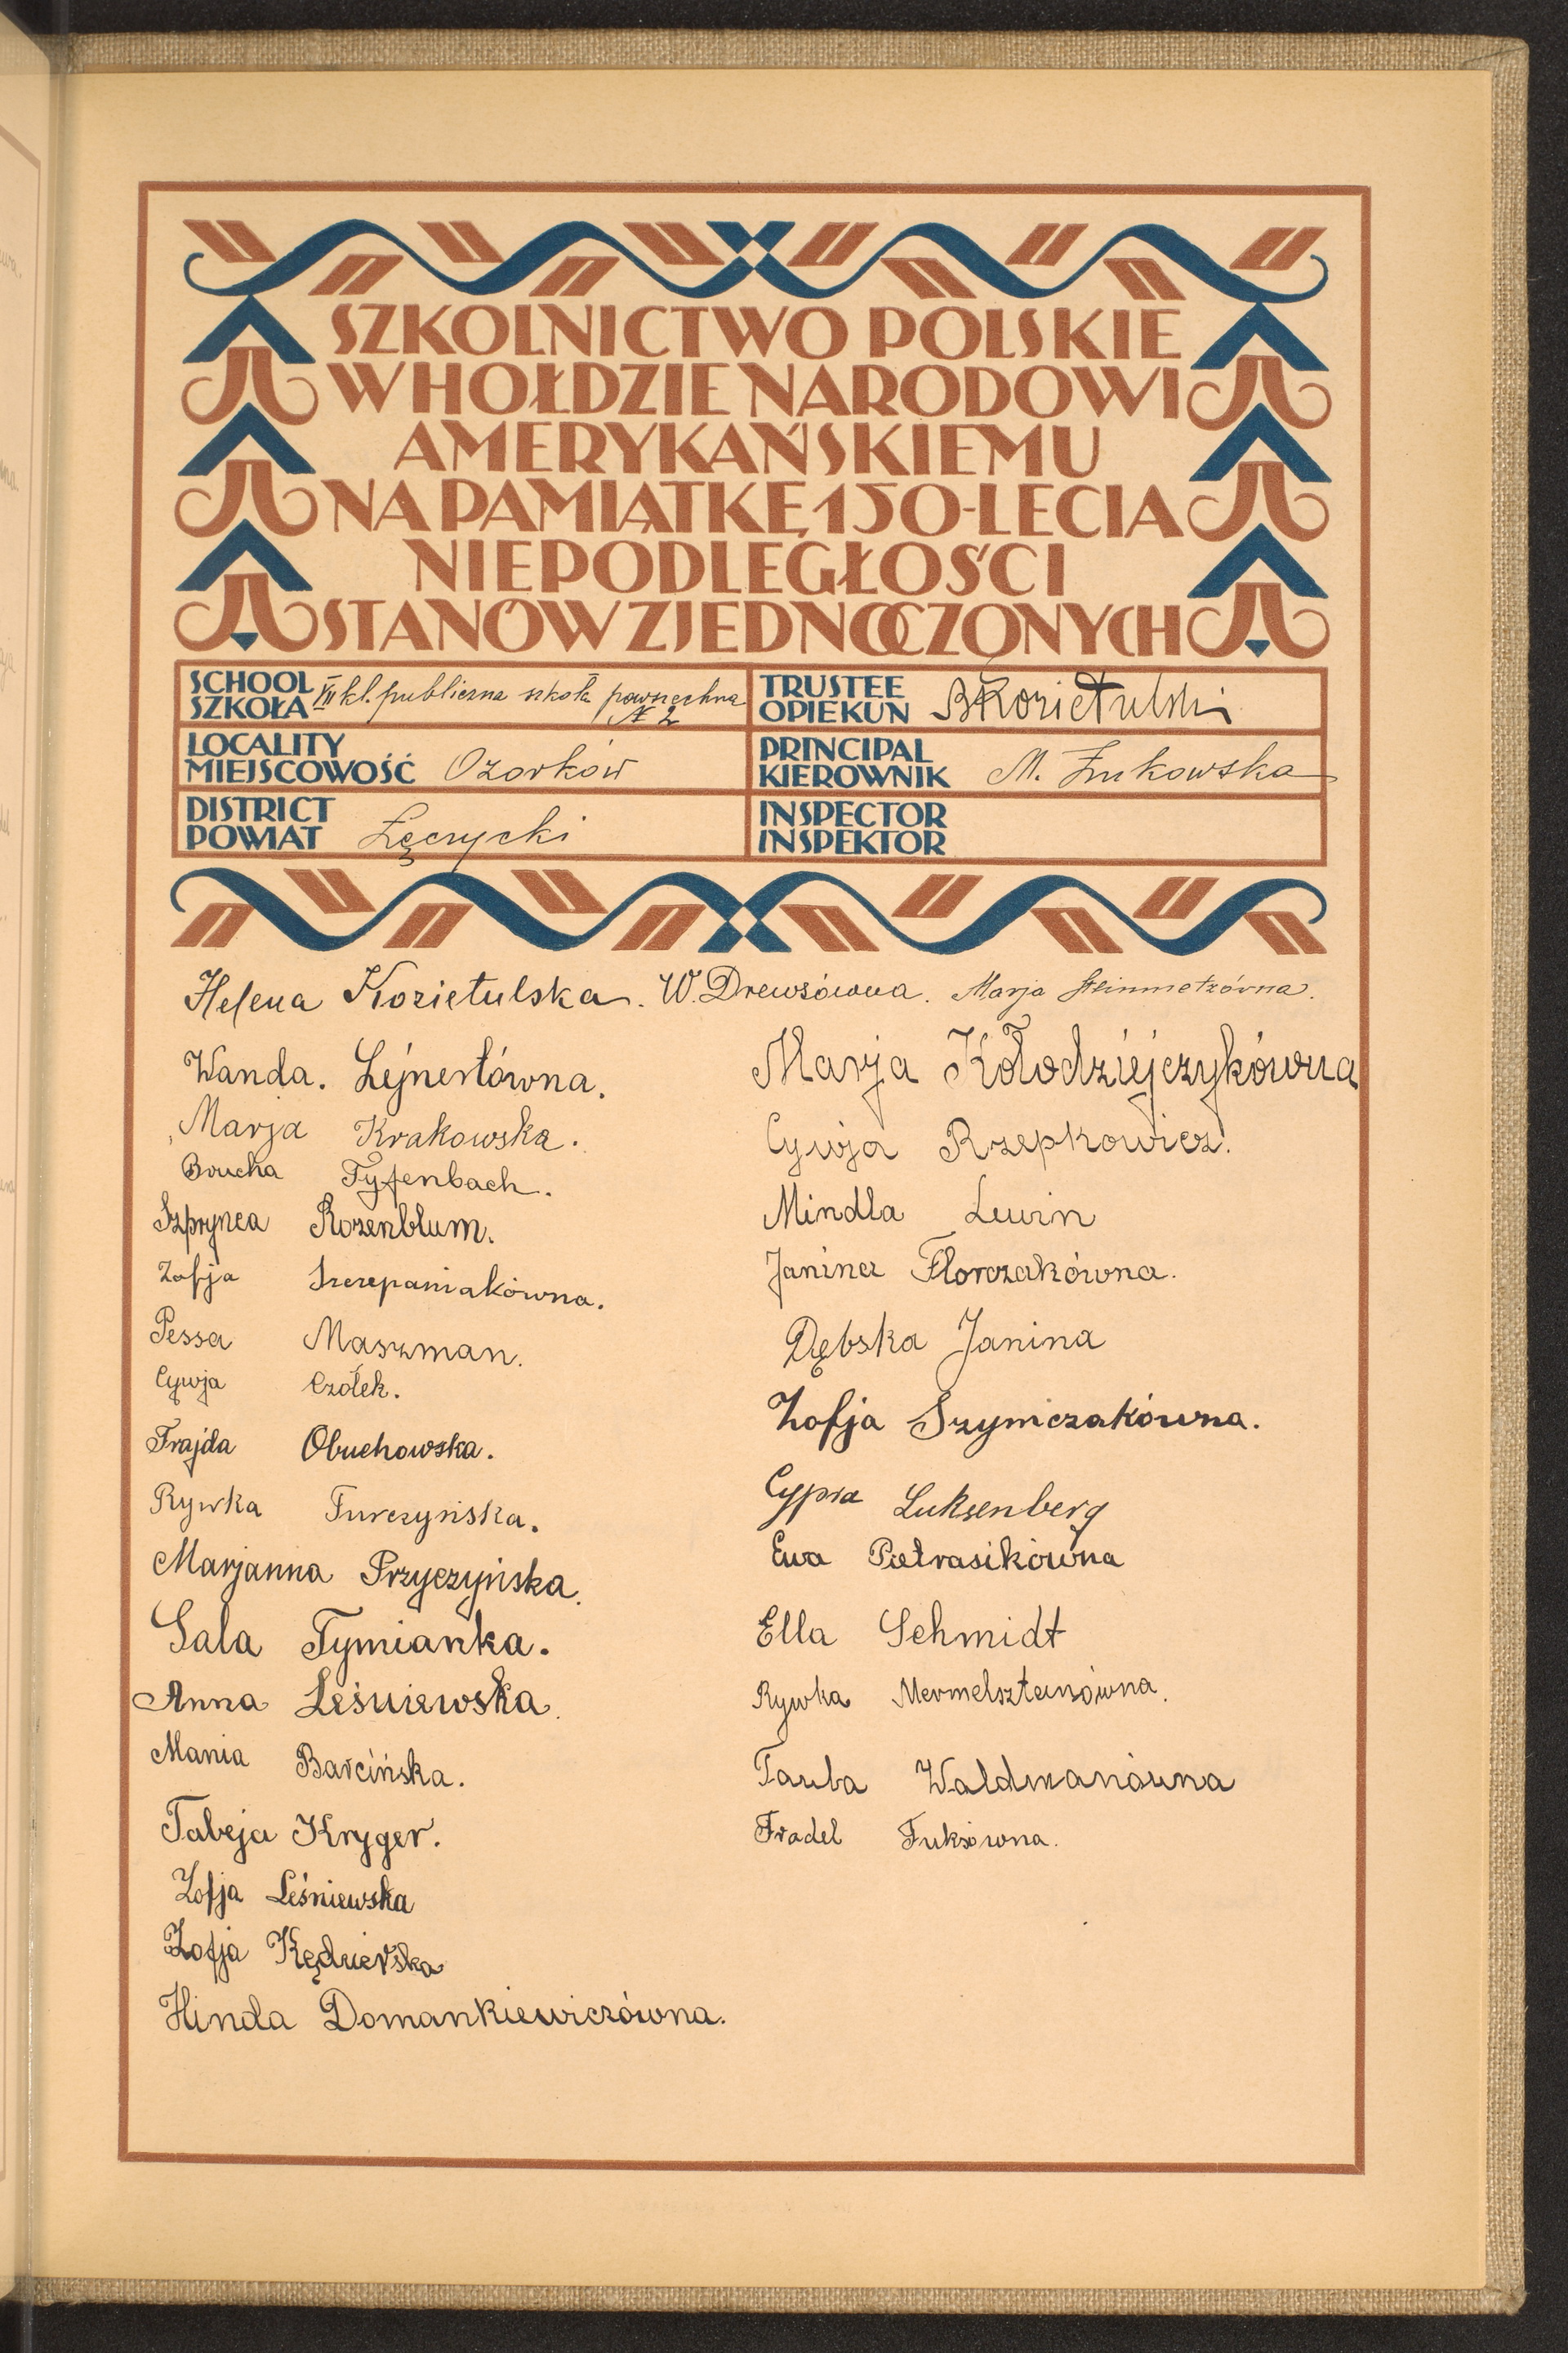 SZKOLNICTWO POLSKIE
W HOŁDZIE NARODOWI
AMERYKAŃSKIEMU
NA PAMIĄTKĘ 150-LECIA
NIEPODLEGŁOŚCI
STANÓW ZJEDNOCZONYCH
SCHOOL
SZKOŁA VII kl. publiczna szkoła powszechna
№ 2
TRUSTEE
OPIEKUN B Kozietulski
LOCALITY
MIEJSCOWOŚĆ Ozorków
PRINCIPAL
KIEROWNIK M. Żukowska
DISTRICT
POWIAT Łęczycki
INSPECTOR
INSPEKTOR
Helena Kozietulska. W. Drewsówna. Marja Steinmetzówna.
Wanda. Lejnertówna.
Marja Krakowska.
Brucha Tyfenbach.
Szprynca Rozenblum.
Zofja Szczepaniakówna.
Pessa Maszman.
Cywja Czólek.
Frajda Obuchowska.
Rywka Turczyńska.
Marjanna Przyczyńska.
Sala Tymianka.
Anna Leśniewska.
Mania Barcińska.
Tabeja Kryger.
Zofja Leśniewska
Zofja Kędzierska
Hinda Domankiewiczówna.
Marja Kołodziejczykówna
Cywja Rzepkowicz.
Mindla Lewin
Janina Florczakówna.
Dębska Janina
Zofja Szymczakówna.
Cypra Luksenberg
Ewa Pietrasikówna
Ella Schmidt
Rywka Mermelszteinówna.
Tauba Waldmanówna
Fradel Fuksówna.